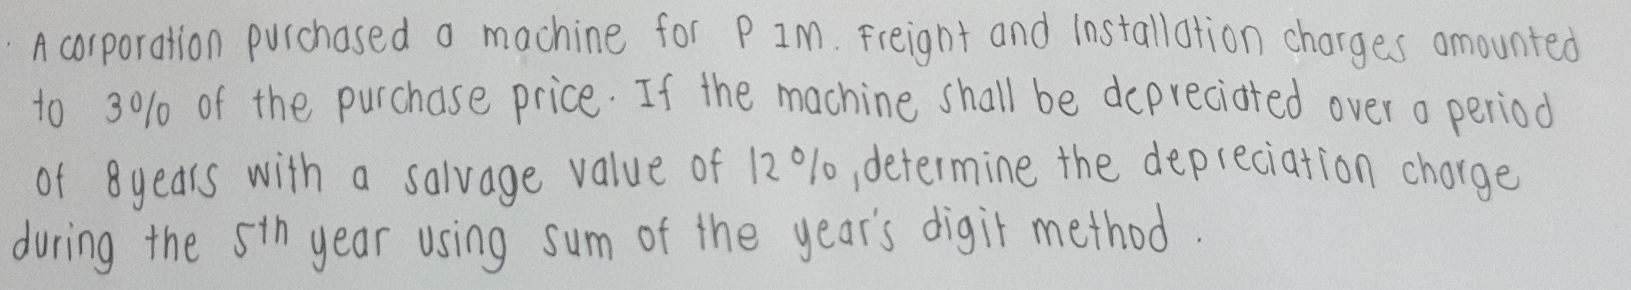 A corporation purchased a machine for P 1M. Freight and Installation charges amounted
to 3% of the purchase price. If the machine shall be depreciated over a period
of 8 years with a salvage value of 12%, determine the depreciation charge
during the 5th year using sum of the year's digit method.